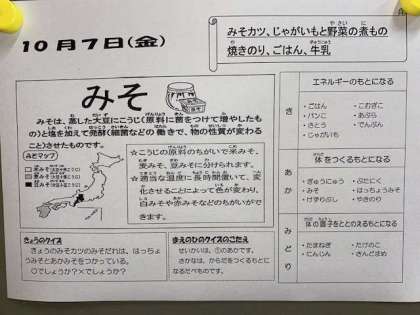 10月7日(金)
みそカツ、じゃがいもと野菜の煮もの
焼きのり、ごはん、牛乳
みそ
みそは、蒸した大豆にこうじ(原料に菌をつけて増やしたも
の)と塩を加えて発酵(細菌などの働きで、物の性質が変わる
こと)させたものです。
みそマップ
☆こうじの原料のちがいで米みそ、
麦みそ、豆みそに分けられます。
☆適当な温度に長時間置いて、変
化させることによって色が変わり、
白みそや赤みそなどのちがいがで
きます。
きょうのクイズ
きょうのみそカツのみそだれは、はっちょ
うみそとあかみそをつかっている。
○でしょうか?×でしょうか?
まえのひのクイズのこたえ
せいかいは、①のあかです。
さかなは、からだをつくるもとに
なるたべものです。
き
エネルギーのもとになる
・ごはん
・こむぎこ
・パンこ
・あぶら
・さとう
・でんぷん
・じゃがいも
あか
体をつくるもとになる
・ぎゅうにゅう
・ぶたにく
・みそ
・はっちょうみそ
・けずりぶし
・やきのり
みどり
体の調子をととのえるもとになる
・たまねぎ
・たけのこ
・にんじん
・さんどまめ